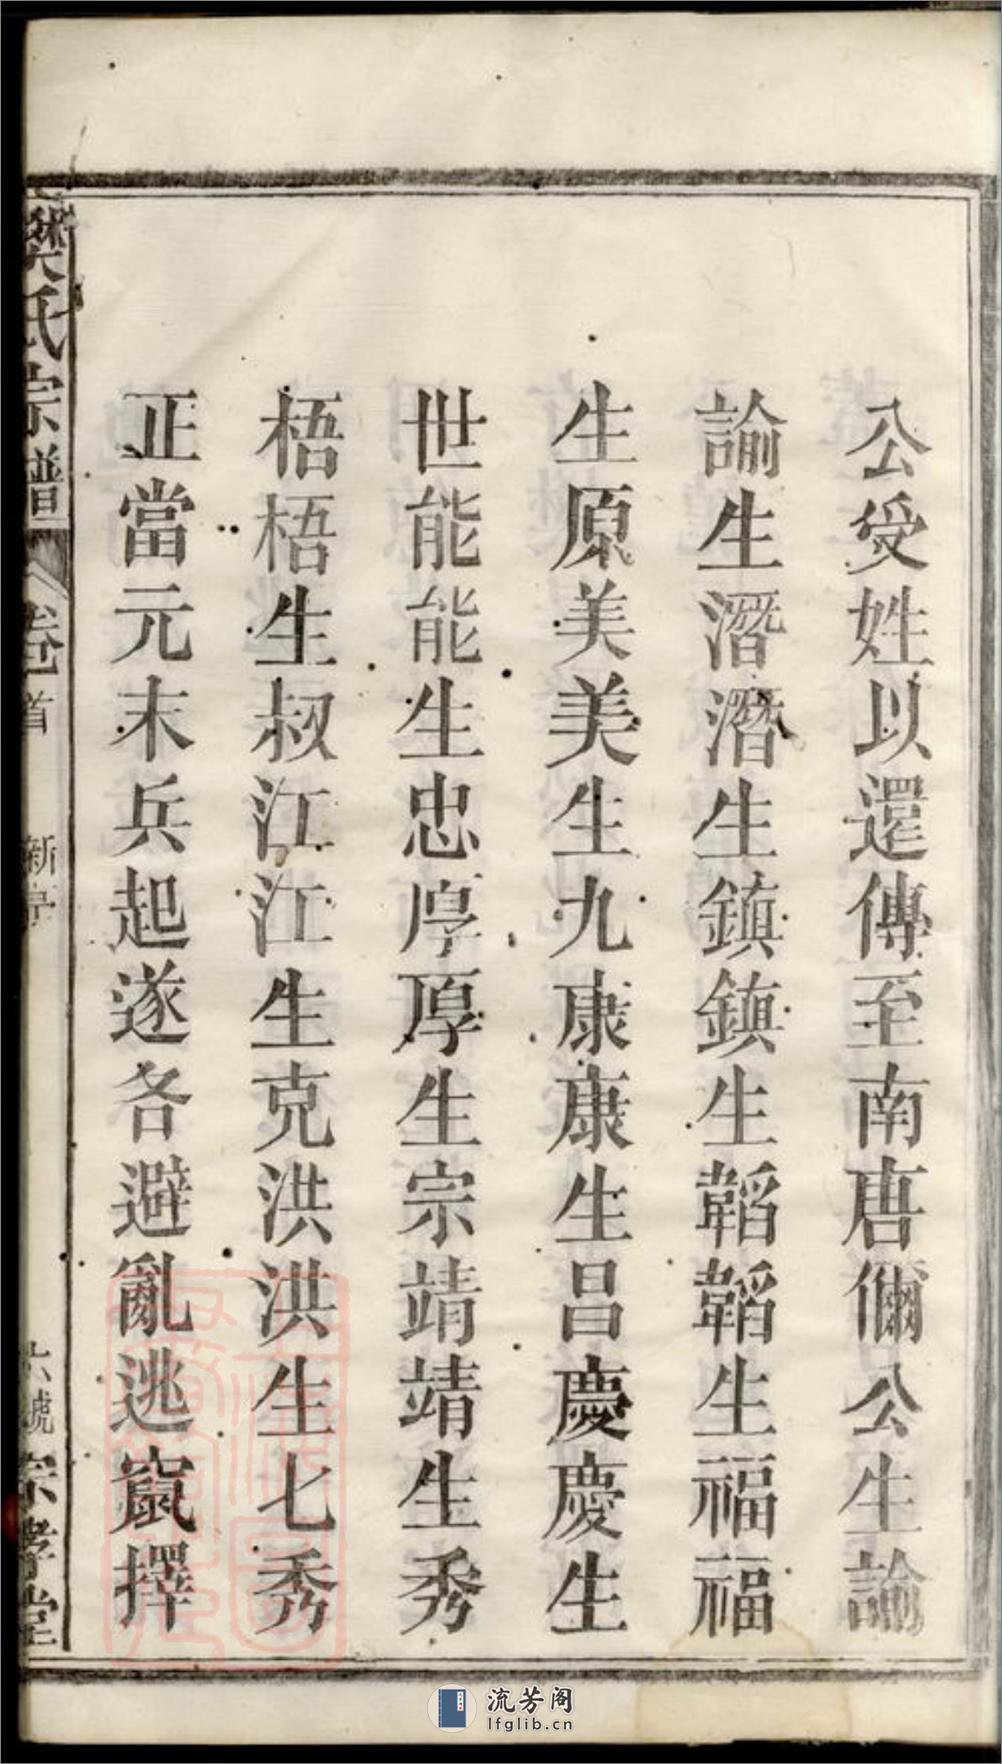 公受姓以還傳至南唐儞公生諭
諭生潛潛生鎮鎮生韜韜生福福
生原美美生九康康生昌慶慶生
世能能生忠厚厚生宗靖靖生秀
梧梧生叔江江生克洪洪生七秀
正當元末兵起遂各避亂逃竄擇
樊氏宗譜 卷首 新序 六號 宗孝堂
流芳阁
lfglib.cn